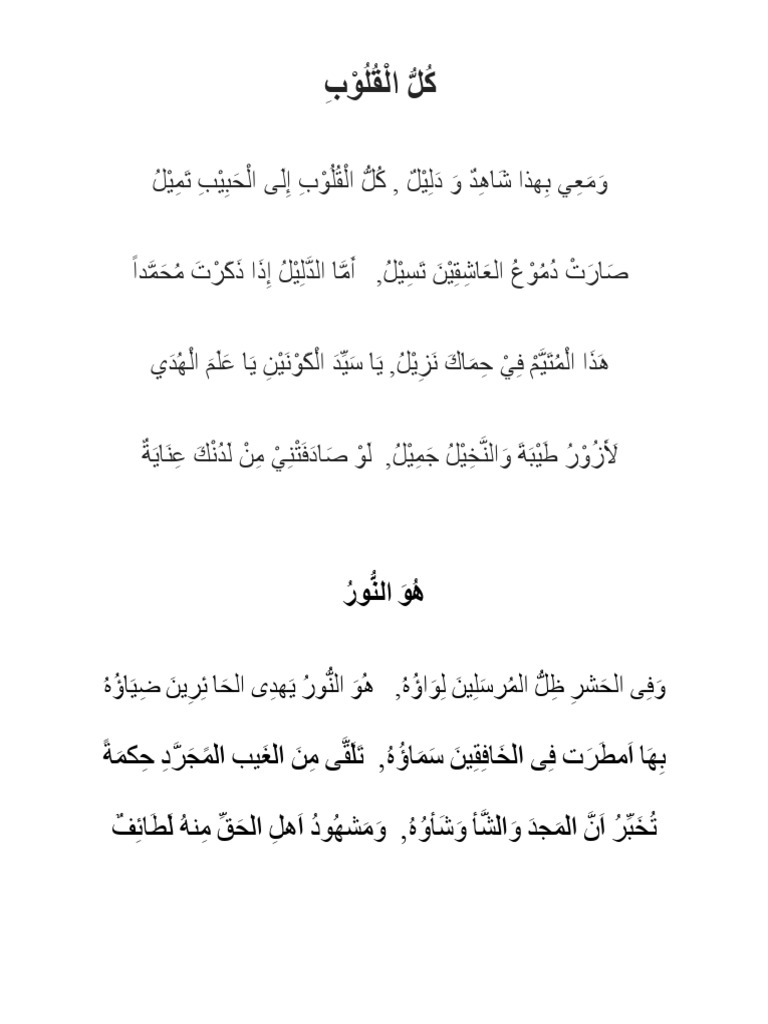 كُلُّ الْقُلُوْبِ
وَمَعِي بِهذا شَاهِدٌ وَ دَلِيْلٌ , كُلُّ الْقُلُوْبِ إِلَى الْحَبِيْبِ تَمِيْلُ
صَارَتْ دُمُوْعُ العَاشِقِيْنَ تَسِيْلُ, أَمَّا الدَّلِيْلُ إِذَا ذَكَرْتَ مُحَمَّداً
هَذَا الْمُتَيَّمْ فِيْ حِمَاكَ نَزِيْلُ, يَا سَيِّدَ الْكَوْنَيْنِ يَا عَلَمَ الْهُدَي
لَأَزُوْرُ طَيْبَةَ وَالنَّخِيْلُ جَمِيْلُ, لَوْ صَادَفَتْنِيْ مِنْ لَدُنْكَ عِنَايَةٌ
هُوَ النُّورُ
وَفِى الحَشرِ ظِلُّ المُرسَلِينَ لِوَاؤُهُ, هُوَ النُّورُ يَهدِى الحَائِرِينَ ضِيَاؤُهُ
بِهَا اَمطَرَت فِى الخَافِقِينَ سَمَاؤُهُ, تَلَقَّى مِنَ الغَيب المًجَرَّدِ حِكمَةً
تُخَبِّرُ اَنَّ المَجدَ وَالشَّأ وَشَأوُهُ, وَمَشهُودُ اَهلِ الحَقِّ مِنهُ لَطَائِفٌ